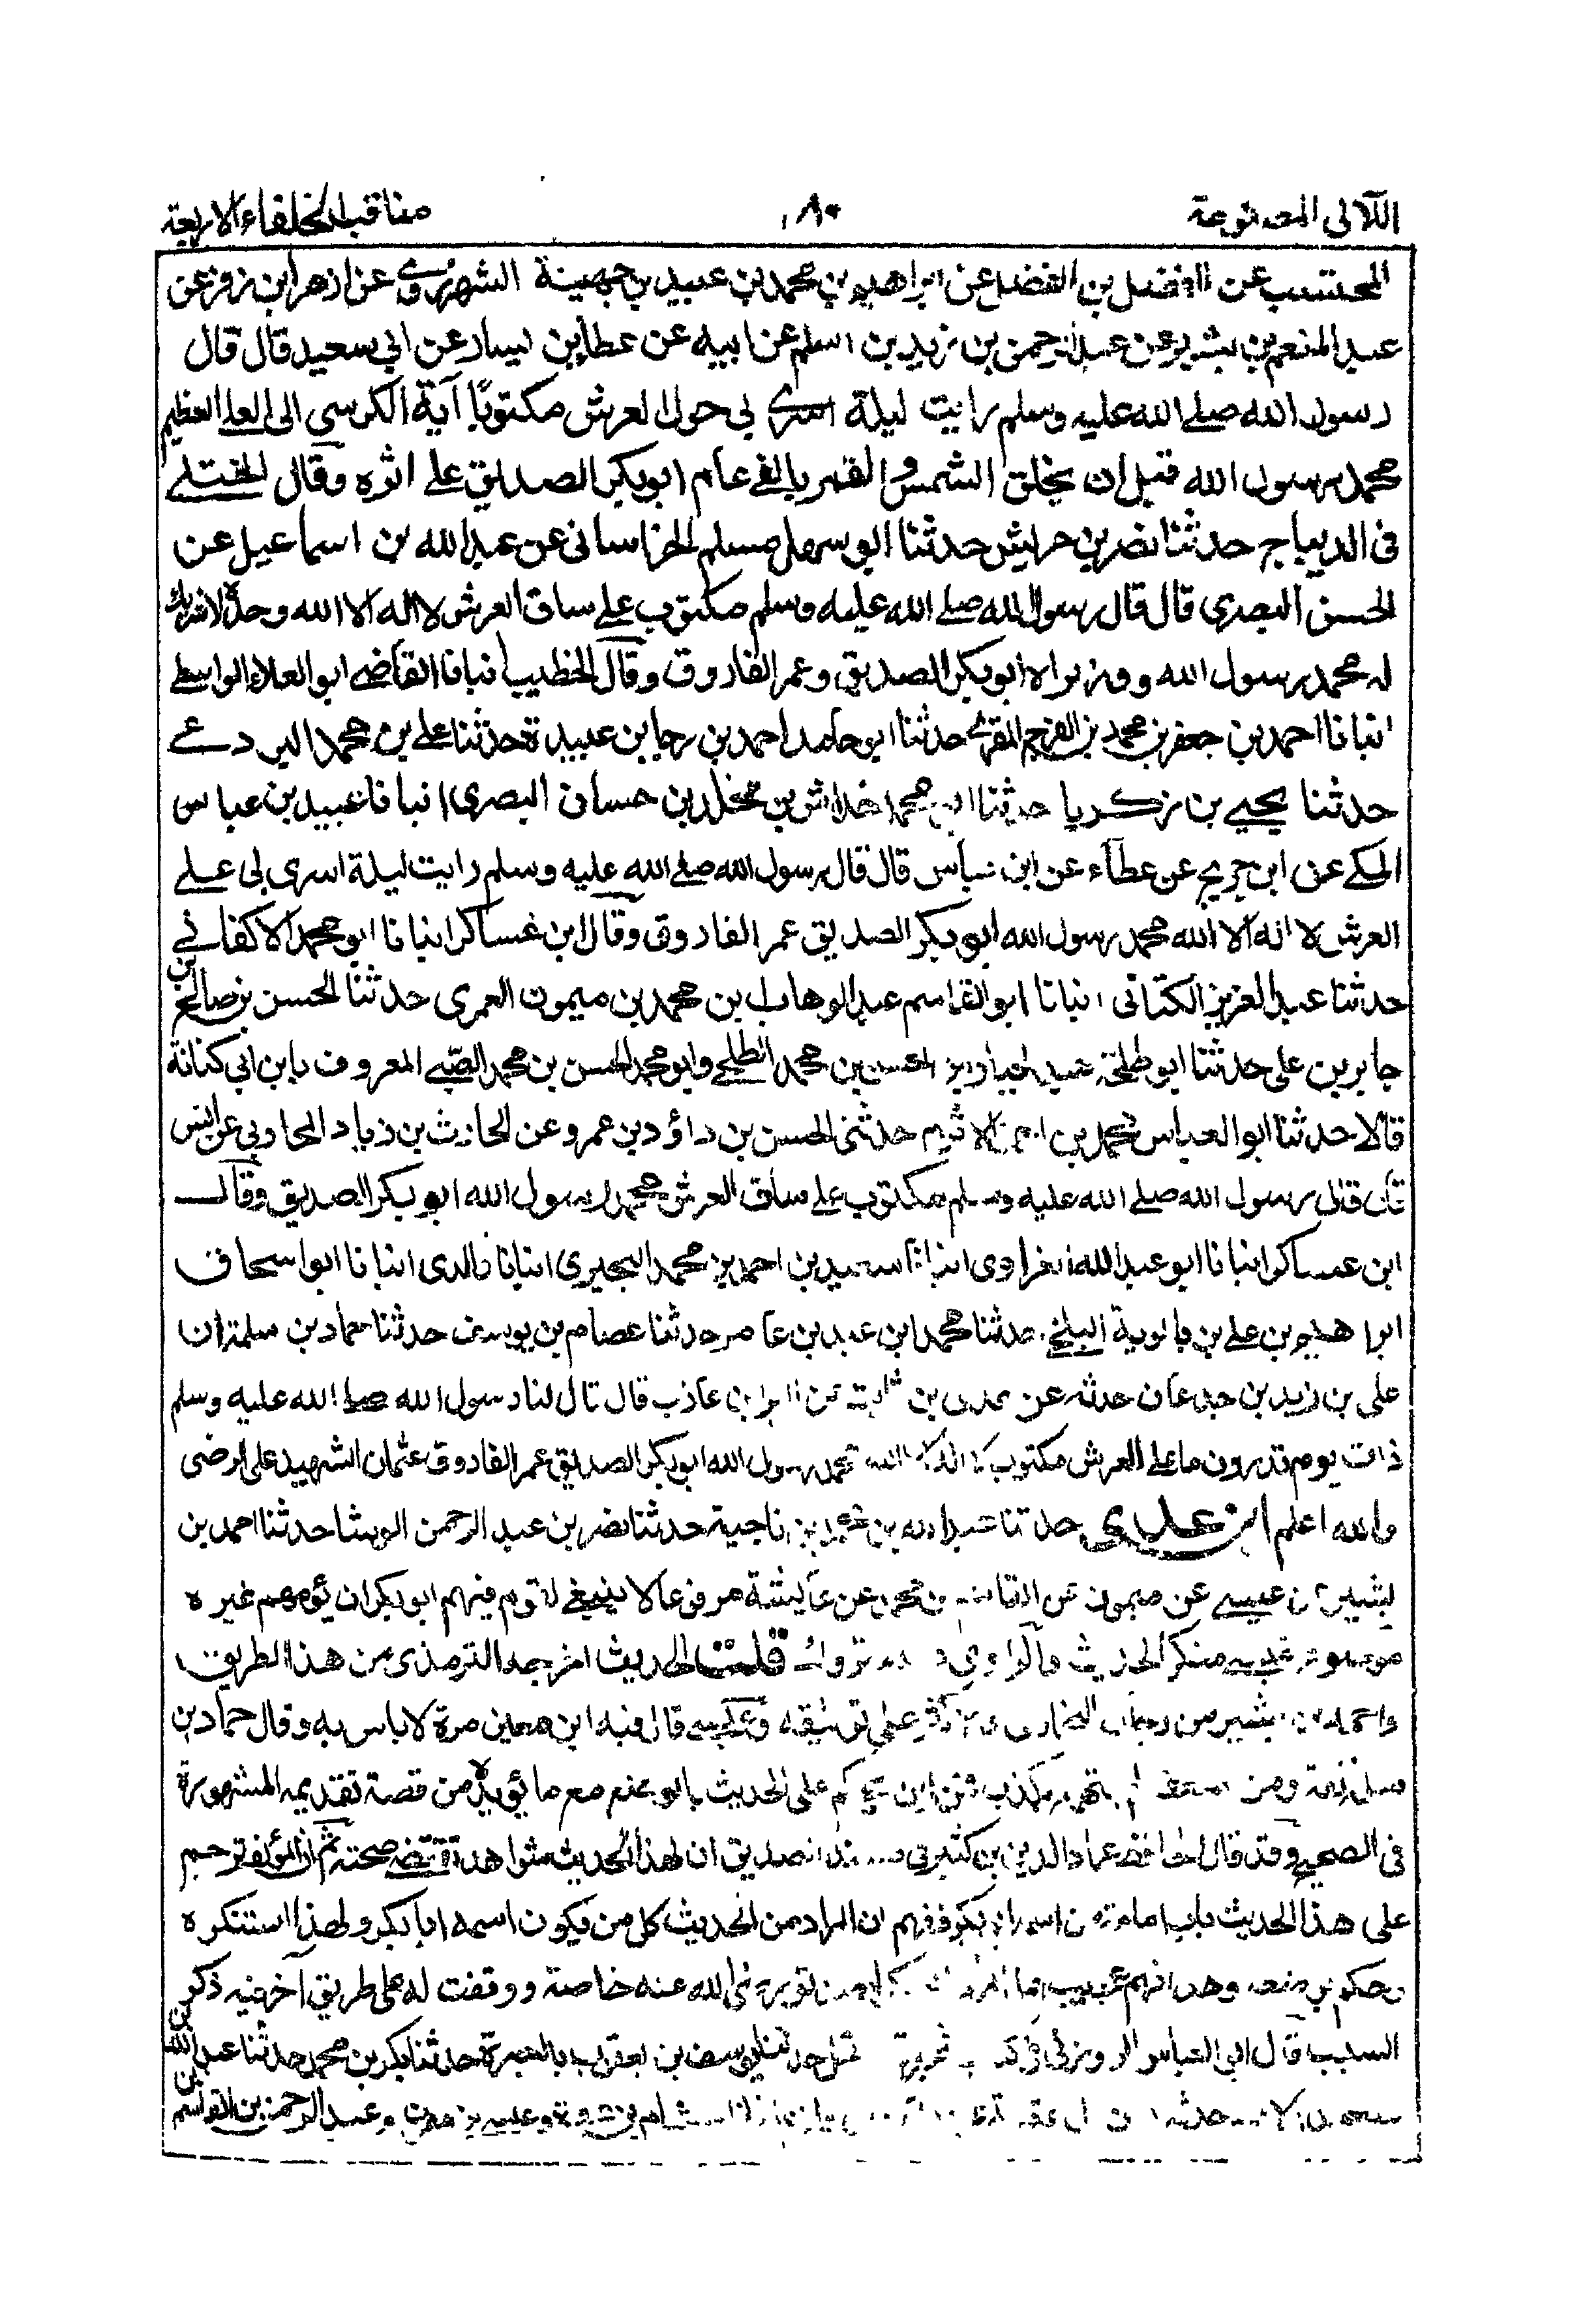 اللآلى المصنوعة
١٨٠
مناقب الخلفاء الاربعة
المحتسب عن الفضل بن الفضل عن ابراهيم بن محمد بن عبيد بن جهينة الشهرزورى عن ازهر ابن زفر عن
عبد المنعم بن بشير عن عبد الرحمن بن زيد بن اسلم عن ابيه عن عطا بن يسار عن ابى سعيد قال قال
رسول الله صلے الله عليه وسلم رايت ليلة اسرى بى حول العرش مكتوبًا آية الكرسى الى العلے العظيم
محمد رسول الله قبل ان يخلق الشمس و القمر بالفے عام ابو بكر الصديق علے اثره وقال الختلے
فى الديباج حدثنا نصر بن حرايش حدثنا ابو سهل مسلم الخراسانى عن عبد الله بن اسماعيل عن
الحسن البصرى قال قال رسول الله صلے الله عليه وسلم مكتوب علے ساق العرش لا اله الا الله وحده لا شريك
له محمد رسول الله ووزيراه ابو بكر الصديق وعمر الفاروق وقال الخطيب انبانا القاضے ابو العلاء الواسطے
انبانا احمد بن جعفر بن محمد بن الفرج المقرى حدثنا ابو حامد احمد بن رجا بن عبيدة حدثنا علے بن محمد البردعے
حدثنا يحيے بن زكريا حدثنا ابو محمد خداش بن مخلد بن حسان البصرى انبانا عبيد بن عباس
المكے عن ابن جريج عن عطآء عن ابن عباس قال قال رسول الله صلے الله عليه وسلم رايت ليلة اسرى بى علے
العرش لا اله الا الله محمد رسول الله ابو بكر الصديق عمر الفاروق وقال ابن عساكر انبانا ابو محمد الاكفانے
حدثنا عبد العزيز الكتانى انبانا ابو القاسم عبد الوهاب بن محمد بن ميمون العمرى حدثنا الحسن بن صالح بن
جابر بن على حدثنا ابو طلحة عبد الجبار بن الحسن بن محمد الطلحے وابو محمد الحسن بن محمد الضبے المعروف بابن ابى كنانة
قالا حدثنا ابو العباس محمد بن الاثرم حدثنى الحسن بن داؤد بن عمرو عن الحارث بن زياد المحاربى عن انس
قال قال رسول الله صلے الله عليه وسلم مكتوب علے ساق العرش محمد رسول الله ابو بكر الصديق وقال
ابن عساكر انبانا ابو عبد الله الفراوى انبانا سعيد بن احمد بن محمد البحيرى انبانا والدى انبانا ابو اسحاق
ابراهيم بن علے بن بالوية البلخے حدثنا محمد ابن عبد بن عامر حدثنا عصام بن يوسف حدثنا حماد بن سلمة ان
على بن زيد بن جدعان حدثه عن عدى بن ثابت عن البراء بن عازب قال قال لنا رسول الله صلے الله عليه وسلم
ذات يوم تدرون ما على العرش مكتوب لا اله الا الله محمد رسول الله ابو بكر الصديق عمر الفاروق عثمان الشهيد على الرضى
والله اعلم ابن عدى حدثنا عبد الله بن محمد بن ناجية حدثنا نصر بن عبد الرحمن الوشا حدثنا احمد بن
بشير عن عيسے عن ميمون عن القاسم بن محمد عن عآيشة مرفوعا لا ينبغے لقوم فيهم ابو بكر ان يؤمهم غيره
موضوع عيسے منكر الحديث والراوى متروك قلت الحديث اخرجه الترمذى من هذا الطريق
واحمد بن بشير من رجال البخارى والاكثر على توثيقه وعيسے قال فيه ابن معين مرة لا باس به وقال حماد بن
سلمة ثقة ومن ضعفه لم يتهمه بكذب فمن اين يحكم على الحديث بالوضع مع ما يؤيده من قصة تقديمه المشهورة
فى الصحيح وقد قال الحافظ عماد الدين بن كثير فى مسند الصديق ان لهذا الحديث شواهد تقتضے صحته ثم ان المؤلف ترجم
على هذا الحديث باب امامة من اسمه ابو بكر ففهم ان المراد من الحديث كل من يكون اسمه ابا بكر ولهذا استنكره
وحكم بوضعه وهذا فهم عجيب رضى الله عنه خاصة ووقفت له على طريق آخر فيه ذكر
السبب قال ابو العباس حدثنا يوسف بن يعقوب بالبصرة حدثنا بكر بن محمد حدثنا عبد الله بن
حدثنا هشام بن عروة وعيسے بن وعبد الرحمن بن القاسم بن